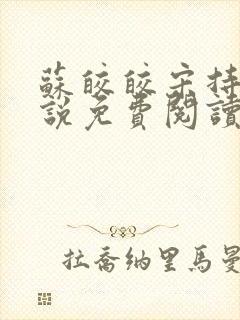 蘇皎皎宋持
說免費閱讀
拉喬納里馬曼